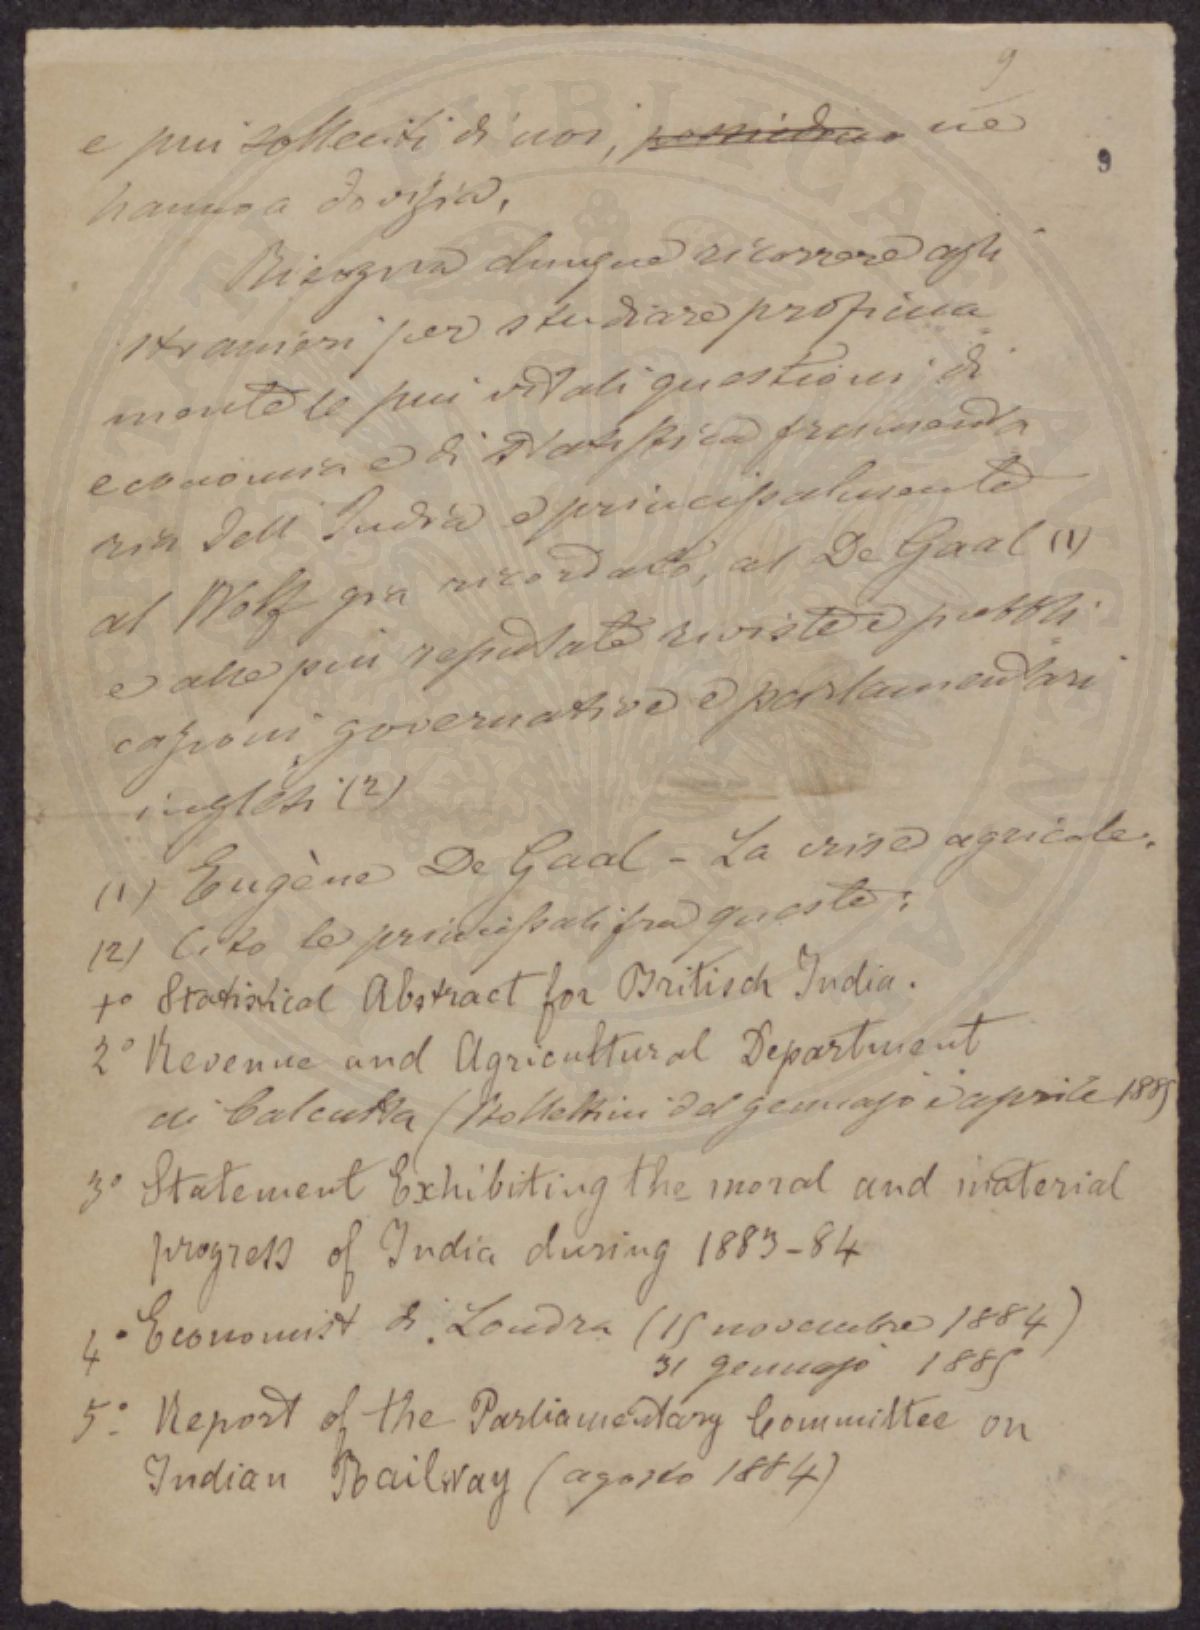 9
9
e piu solleciti di noi, possiedono ne
hanno a dovizia.
Bisogna dunque ricorrere agli
stranieri per studiare proficua
mente le piu vitali questioni di
economia e di statistica frumenta
ria dell' India e principalmente
al Wolf gia ricordato, al De Gaal (1)
e alle piu reputate riviste e pubbli
cazioni governative e parlamentari
inglesi (2)
(1) Eugène De Gaal - La crise agricole.
(2) Cito le principali fra queste:
1° Statistical Abstract for Britisch India.
2° Revenue and Agricultural Department
di Calcutta (Bollettini del gennajo e aprile 1885
3° Statement Exhibiting the moral and material
progress of India during 1883-84
4° Economist di Londra (15 novembre 1884)
31 gennajo 1885
5° Report of the Parliamentary Committee on
Indian Railway (agosto 1884)